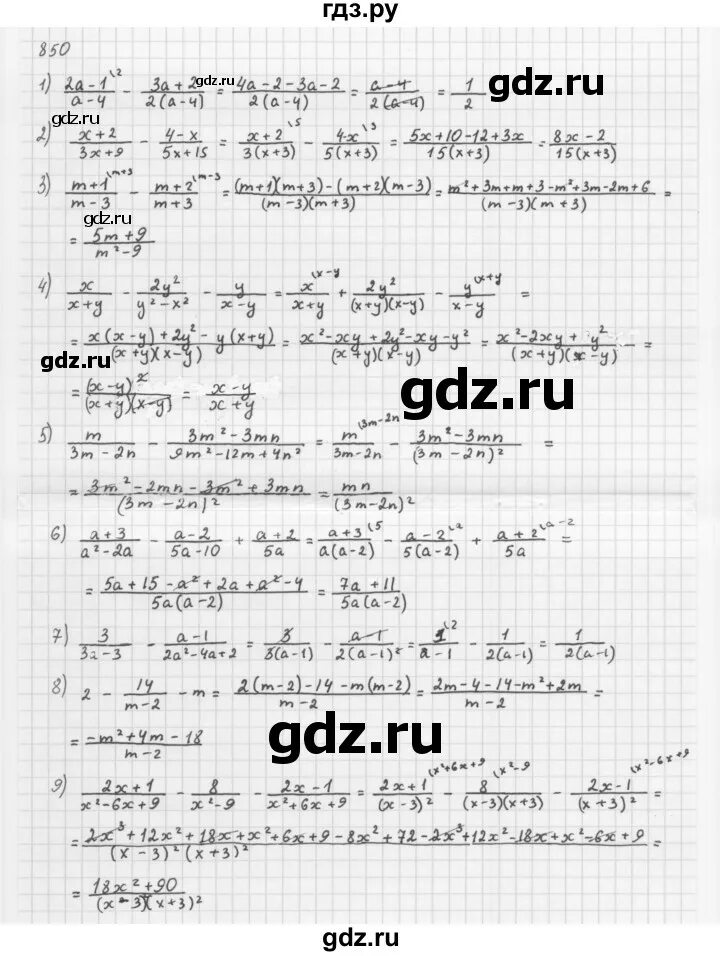 гдз.ру
850
1) \frac{2a-1^{\backslash 2}}{a-4} - \frac{3a+2}{2(a-4)} = \frac{4a-2-3a-2}{2(a-4)} = \frac{a-4}{2(a-4)} = \frac{1}{2}
gdz.ru
gdz.ru
2) \frac{x+2}{3x+9} - \frac{4-x}{5x+15} = \frac{x+2^{\backslash 5}}{3(x+3)} - \frac{4-x^{\backslash 3}}{5(x+3)} = \frac{5x+10-12+3x}{15(x+3)} = \frac{8x-2}{15(x+3)}
3) \frac{m+1^{\backslash m+3}}{m-3} - \frac{m+2^{\backslash m-3}}{m+3} = \frac{(m+1)(m+3)-(m+2)(m-3)}{(m-3)(m+3)} = \frac{m^2+3m+m+3-m^2+3m-2m+6}{(m-3)(m+3)} =
= \frac{5m+9}{m^2-9}
gdz.ru
4) \frac{x}{x+y} - \frac{2y^2}{y^2-x^2} - \frac{y}{x-y} = \frac{x^{\backslash x-y}}{x+y} + \frac{2y^2}{(x+y)(x-y)} - \frac{y^{\backslash x+y}}{x-y} =
= \frac{x(x-y)+2y^2-y(x+y)}{(x+y)(x-y)} = \frac{x^2-xy+2y^2-xy-y^2}{(x+y)(x-y)} = \frac{x^2-2xy+y^2}{(x+y)(x-y)} =
gdz.ru
= \frac{(x-y)^2}{(x+y)(x-y)} = \frac{x-y}{x+y}
gdz.ru
5) \frac{m}{3m-2n} - \frac{3m^2-3mn}{9m^2-12m+4n^2} = \frac{m^{\backslash 3m-2n}}{3m-2n} - \frac{3m^2-3mn}{(3m-2n)^2} =
= \frac{3m^2-2mn-3m^2+3mn}{(3m-2n)^2} = \frac{mn}{(3m-2n)^2}
gdz.ru
6) \frac{a+3}{a^2-2a} - \frac{a-2}{5a-10} + \frac{a+2}{5a} = \frac{a+3^{\backslash 5}}{a(a-2)} - \frac{a-2^{\backslash a}}{5(a-2)} + \frac{a+2^{\backslash a-2}}{5a} =
= \frac{5a+15-a^2+2a+a^2-4}{5a(a-2)} = \frac{7a+11}{5a(a-2)}
7) \frac{3}{3a-3} - \frac{a-1}{2a^2-4a+2} = \frac{3}{3(a-1)} - \frac{a-1}{2(a-1)^2} = \frac{1^{\backslash 2}}{a-1} - \frac{1}{2(a-1)} = \frac{1}{2(a-1)}
8) 2 - \frac{14}{m-2} - m = \frac{2(m-2)-14-m(m-2)}{m-2} = \frac{2m-4-14-m^2+2m}{m-2} =
gdz.ru
= \frac{-m^2+4m-18}{m-2}
9) \frac{2x+1}{x^2-6x+9} - \frac{8}{x^2-9} - \frac{2x-1}{x^2+6x+9} = \frac{2x+1^{\backslash x^2+6x+9}}{(x-3)^2} - \frac{8^{\backslash x^2-9}}{(x-3)(x+3)} - \frac{2x-1^{\backslash x^2-6x+9}}{(x+3)^2} =
gdz.ru
= \frac{2x^3+12x^2+18x+x^2+6x+9-8x^2+72-2x^3+12x^2-18x+x^2-6x+9}{(x-3)^2(x+3)^2} =
= \frac{18x^2+90}{(x-3)(x+3)^2}
gdz.ru
gdz.ru